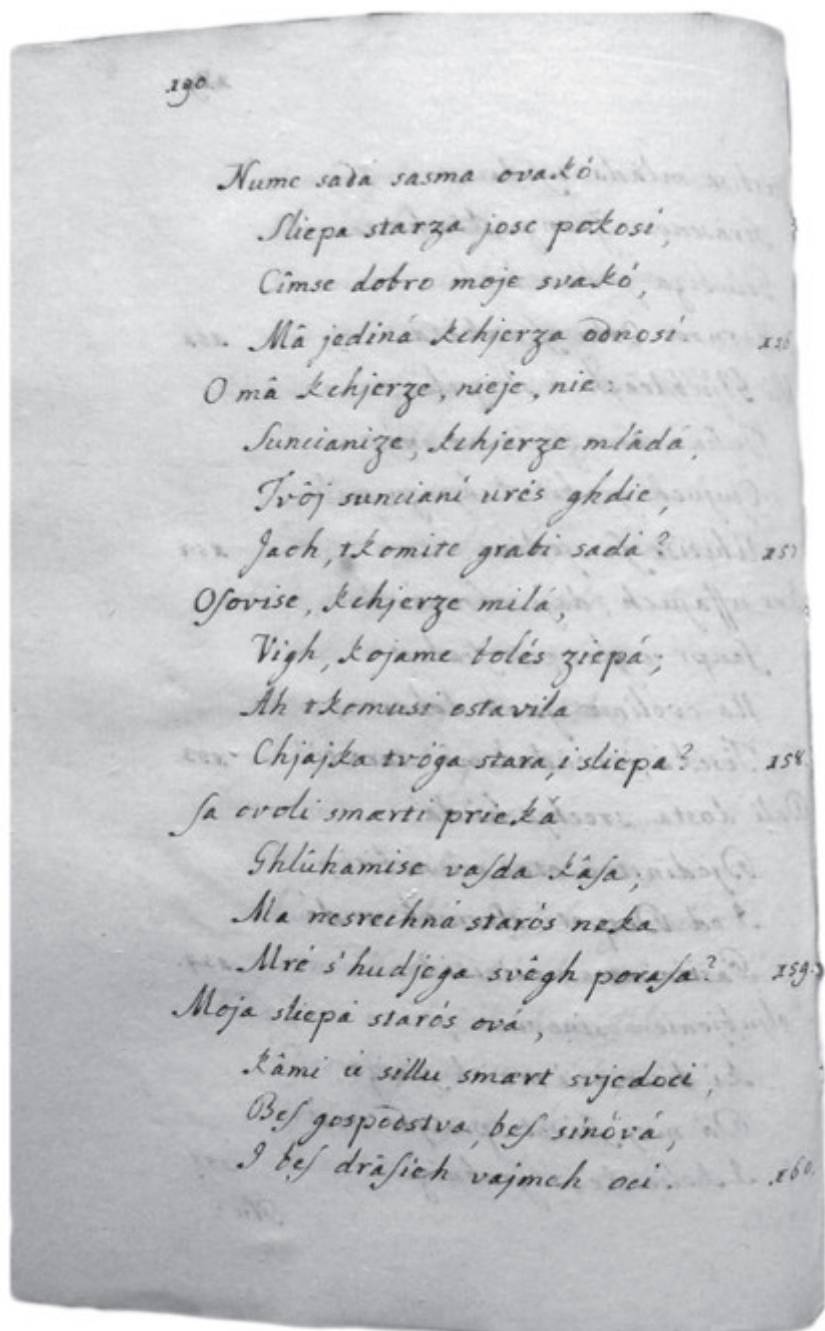 190
Nume sada sasma ovakó
Sliepa starza josc pokosi,
Cîmse dobro moje svakó,
Mâ jediná kchjerza odnosi 156
O mâ kchjerze, nieje, nie:
Suncianize, kchjerze mlâda,
Tvôj sunciani urés ghdie,
Jach, tkomite grabi sada? 157
Osovise, kchjerze mila,
Vigh, kojame bolés ziepá;
Ah tkomusi ostavila
Chjajka tvôga stara, i sliepa? 158.
Sa ovoli smærti prieka
Ghlûhamise vasda kâsa,
Ma nesrechná starós neka
Mré s'hudjega svêgh porasa? 159.
Moja sliepá starós ová,
Kâmi ù sillu smært svjedoci,
Bes gospodstva, bes sinóvá,
I bes drâsieh vajmeh oci. 160.